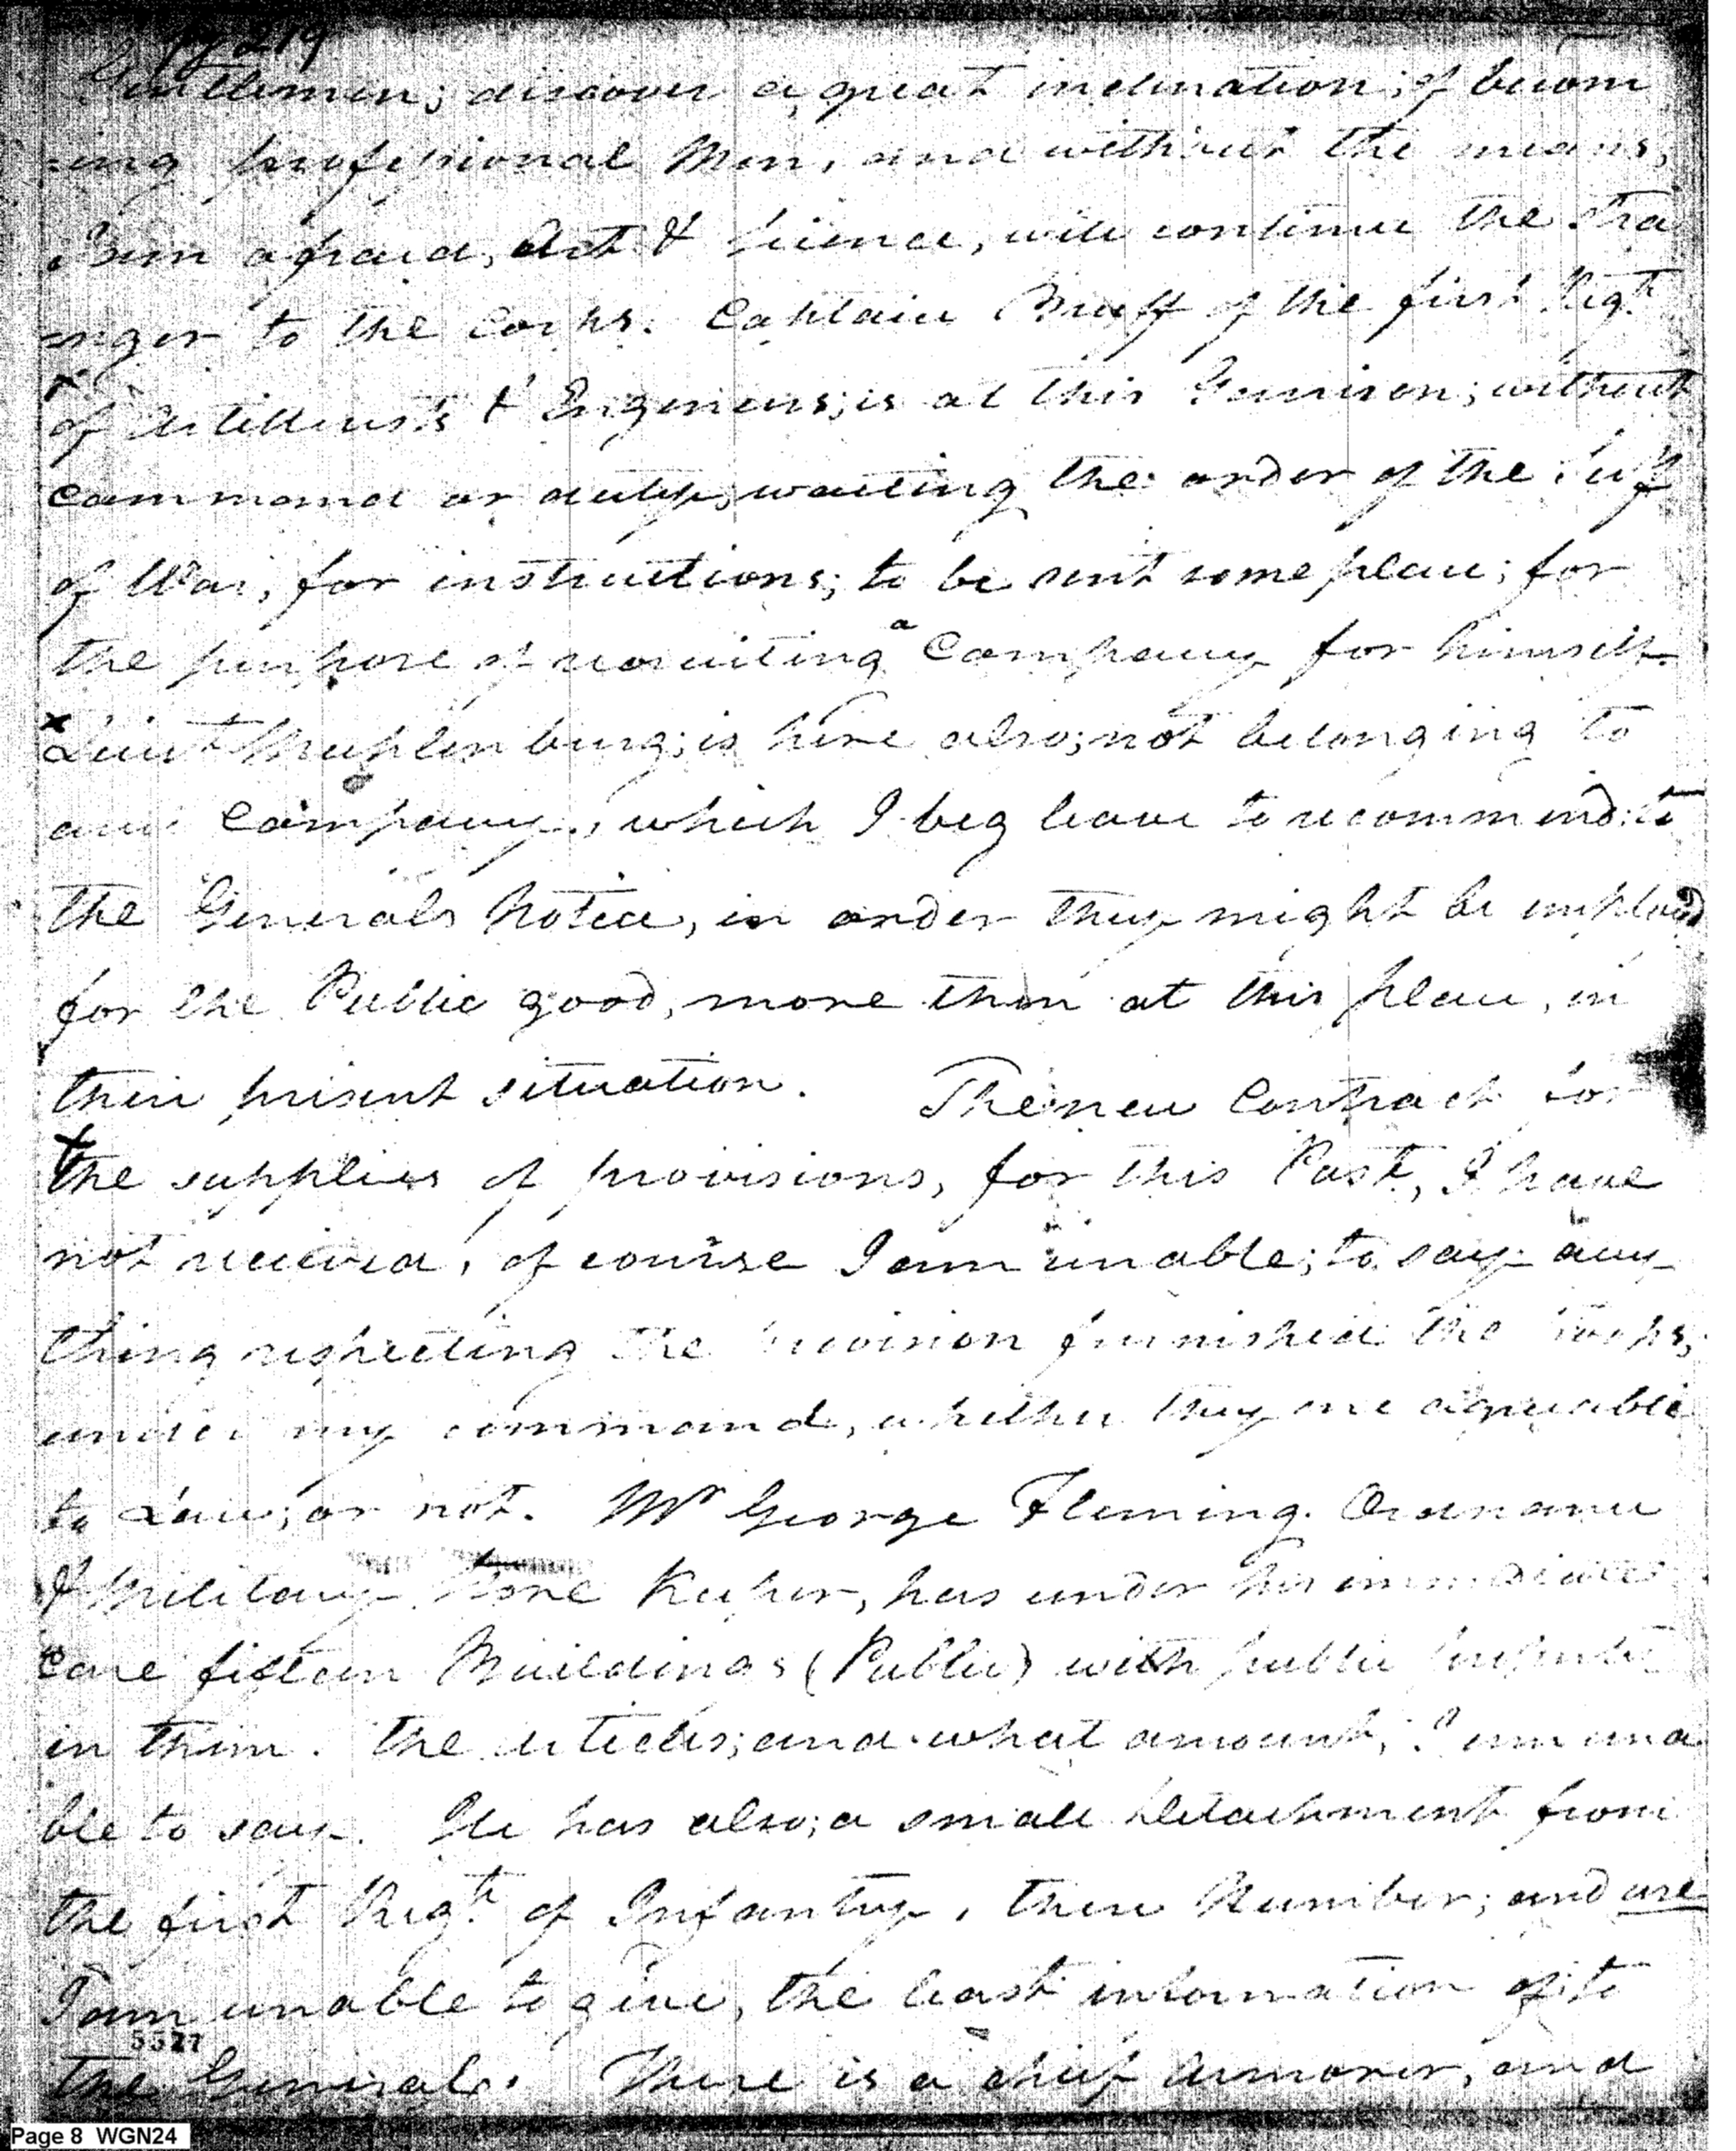 pg 219
Gentlemen; discover a great inclination; of becom
-ing professional Men, and without the means,
I am afraid, Art & Science, will continue the stra
nger to the Corps. Captain Bruff of the first Regt
of Artillerists & Engineers; is at this Garrison; without
command or duty, waiting the order of the Secy
of War, for instructions; to be sent some place; for
the purpose of recruiting a Company for himself.
x Lieut Muhlenburg; is here also; not belonging to
any Company, which I beg leave to recommend: to
the Generals Notice, in order they might be employd
for the Public good, more than at this place, in
their present situation. The new Contract for
the supplies of provisions, for this Post, I have
not received, of course I am unable; to say any
thing respecting the provision furnished the troops,
under my command, whether they are agreeable
to Law; or not. Mr George Fleming. Ordnance
& Military Store Keeper, has under his immediate
care fifteen Buildings (Public) with public property
in them. The Articles; and what amount, I am una
ble to say. He has also; a small Detachment from
the first Regt of Infantry, their Number; and use
I am unable to give, the least information of; to
the General. There is a chief Armorer, and
5527
Page 8 WGN24